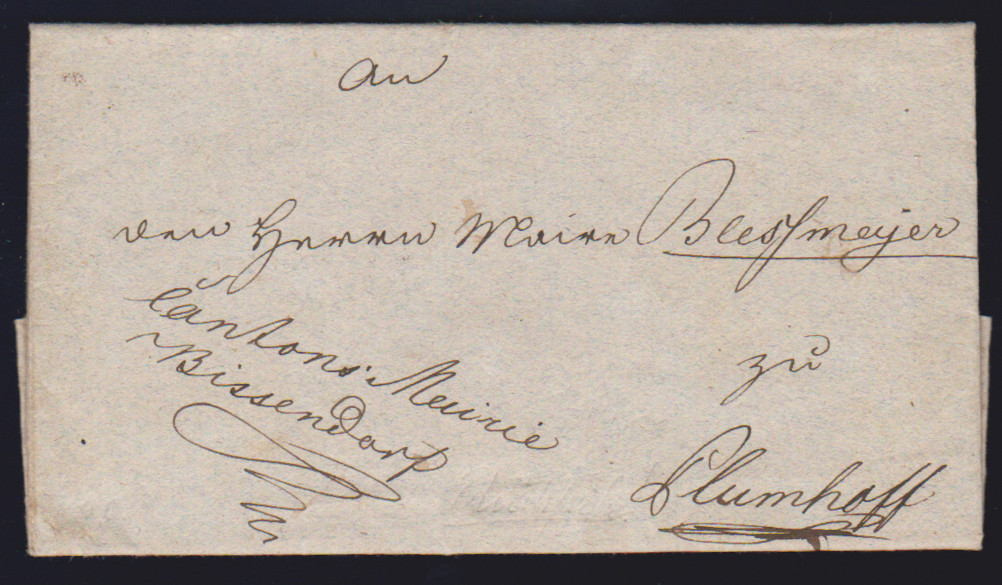 An
den Herrn Maire Blessmeyer
Cantons-Mairie
Bissendorf
zu
Plumhoff